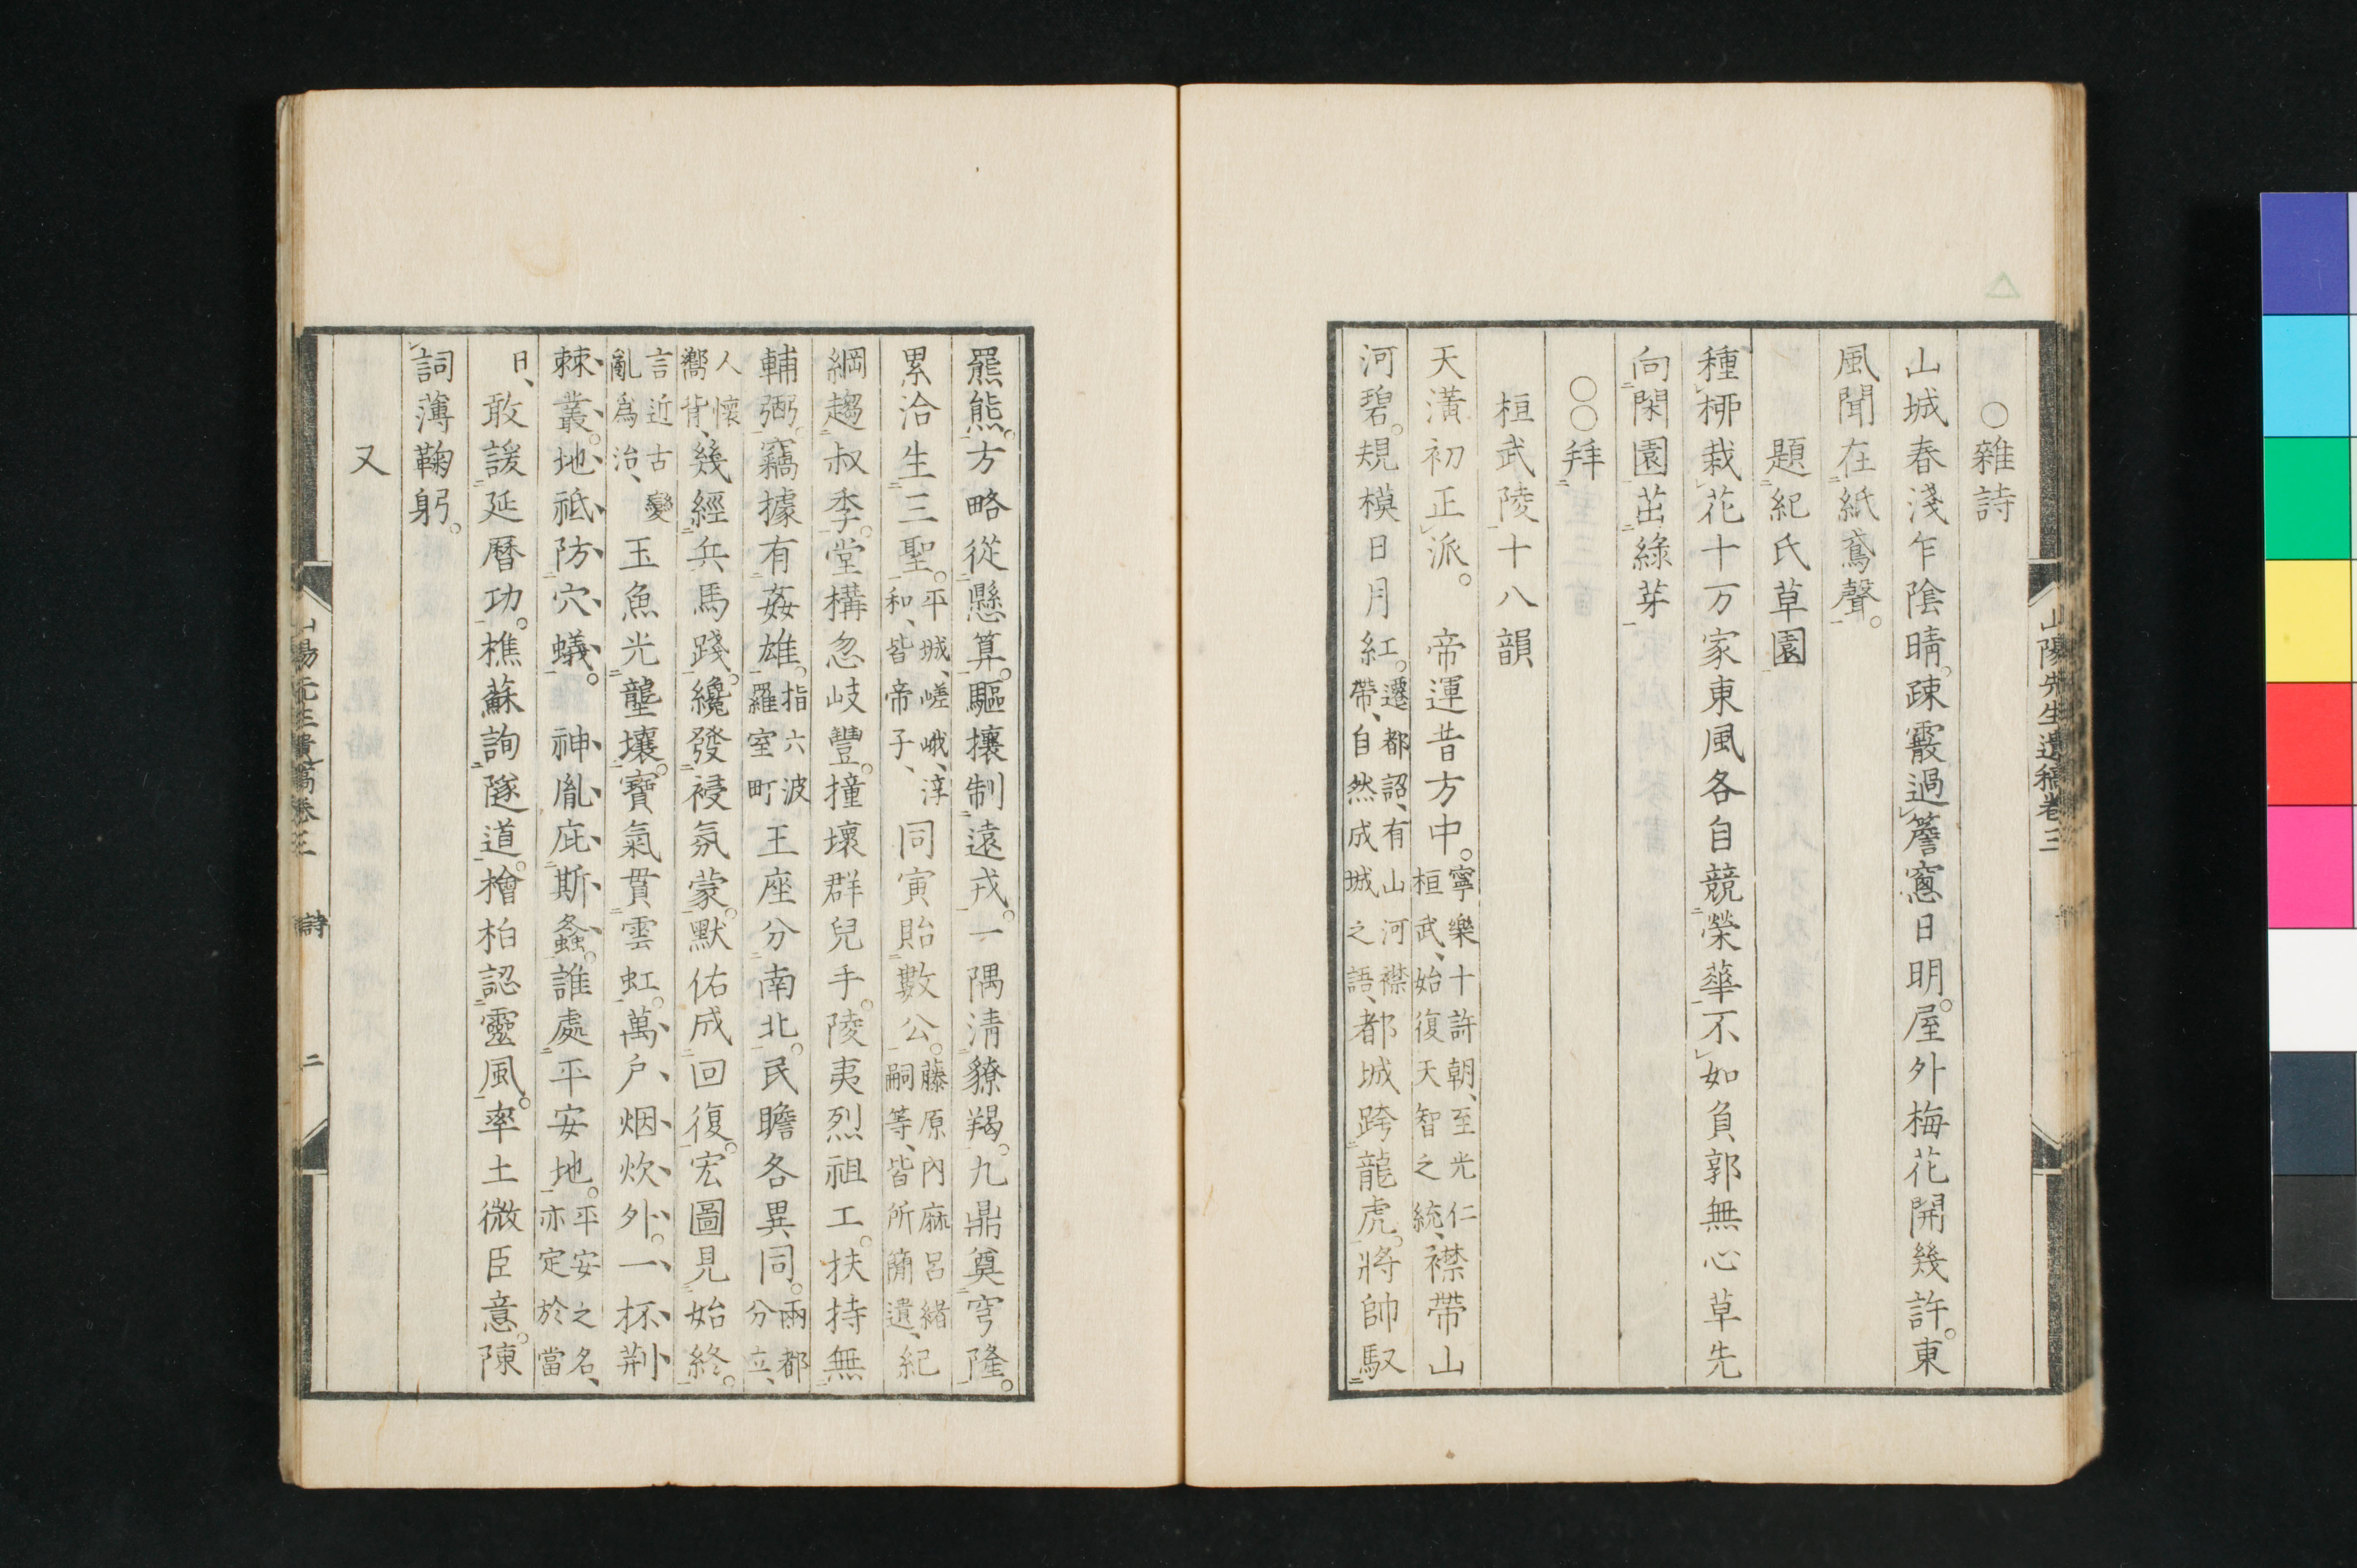 山陽先生遺稿卷三
○雜詩
山城春淺乍陰晴。疎霰過簷窻日明。屋外梅花開幾許。東
風聞在紙鳶聲。
題紀氏草園
種桺栽花十万家東風各自競榮華不如負郭無心草先
向閑園茁綠芽
○○拜
桓武陵十八韻
天潢初正派。帝運昔方中。寧樂十許朝、至光仁桓武、始復天智之統、襟帶山
河碧。規模日月紅。遷都詔、有山河襟帶、自然成城之語、都城跨龍虎。將帥馭
羆熊。方略從懸算。驅攘制遠戎。一隅淸獠羯。九鼎奠穹隆。
累洽生三聖。平城、嵯峨、淳和、皆帝子、同寅貽數公。藤原內麻呂緒嗣等、皆所簡遺、紀
綱趨叔季。堂構忽岐豐。撞壞群兒手。陵夷烈祖工。扶持無
輔弼。竊據有姦雄。指六波羅室町王座分南北。民瞻各異同。兩都分立、
人懷嚮背、幾經兵馬踐。纔發祲氛蒙。默佑成回復。宏圖見始終。
言近古變亂爲治、玉魚光壟壤。寶氣貫雲虹。萬戶烟炊外。一抔荆
棘叢。地祇防穴蟻。神胤庇斯螽。誰處平安地。平安之名、亦定於當
日、敢諼延曆功。樵蘇詢隧道。檜柏認靈風。率土微臣意。陳
詞薄鞠躬。
又
詩 二